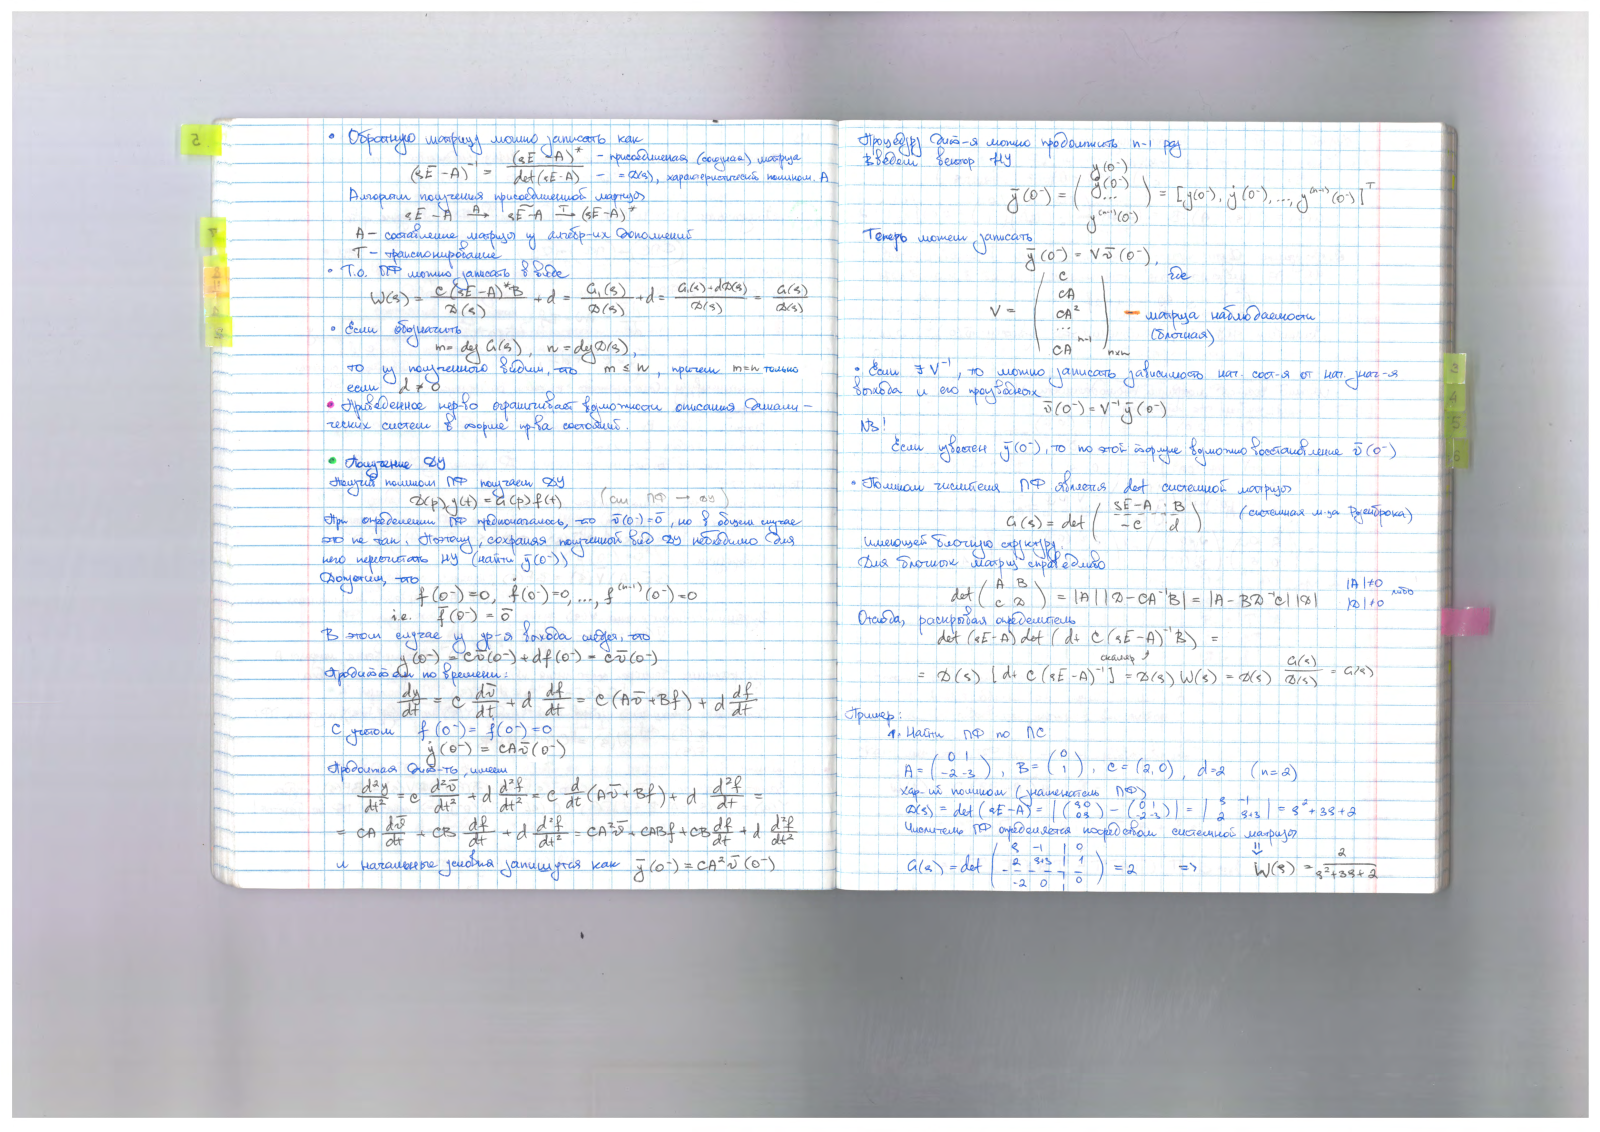 • Обратную матрицу можно записать как
(sE-A)⁻¹ = (sE-A)* / det(sE-A) – присоединенная (союзная) матрица – = D(s), характеристический полином A
Алгоритм получения присоединенной матрицы
sE-A →ᴬ sE-A →ᵀ (sE-A)*
A – составление матрицы из алгебр-их дополнений
T – транспонирование
• Т.о. ПФ можно записать в виде
W(s) = C(sE-A)*B / D(s) + d = G₁(s)/D(s) + d = (G₁(s)+dD(s))/D(s) = G(s)/D(s)
• Если обозначить
m = deg G(s), n = deg D(s),
то из полученного видим, что m ≤ n, причем m=n только
если d ≠ 0
• Приведенное нер-во ограничивает возможности описания динами-
ческих систем в форме пр-ва состояний.
• Получение ДУ
Получив полином ПФ получаем ДУ
D(p)y(t) = G(p)f(t) (см. ПФ → ДУ)
При определении ПФ предполагалось, что v̄(0⁻)=0̄, но в общем случае
это не так. Поэтому, сохраняя полученный вид ДУ необходимо для
него пересчитать НУ (найти ȳ(0⁻))
Допустим, что
f(0⁻)=0, ḟ(0⁻)=0, ..., f⁽ⁿ⁻¹⁾(0⁻)=0
i.e. f̄(0⁻) = 0̄
В этом случае из ур-я выхода следует, что
y(0⁻) = Cv̄(0⁻) + df(0⁻) = Cv̄(0⁻)
Продифф-ем по времени:
dy/dt = C dv̄/dt + d df/dt = C(Av̄+Bf) + d df/dt
С учетом f(0⁻) = ḟ(0⁻) = 0
ẏ(0⁻) = CAv̄(0⁻)
Продолжая дифф-ть, имеем
d²y/dt² = C d²v̄/dt² + d d²f/dt² = C d/dt (Av̄+Bf) + d d²f/dt =
= CA dv̄/dt + CB df/dt + d d²f/dt² = CA²v̄ + CABf + CB df/dt + d d²f/dt²
и начальные условия запишутся как ÿ(0⁻) = CA²·v̄(0⁻)
Процедуру дифф-я можно продолжить n-1 раз
Введем вектор НУ
ȳ(0⁻) = ( y(0⁻) ẏ(0⁻) ... y⁽ⁿ⁻¹⁾(0⁻) ) = [y(0⁻), ẏ(0⁻), ..., y⁽ⁿ⁻¹⁾(0⁻)]ᵀ
Теперь можем записать
ȳ(0⁻) = Vv̄(0⁻),
где
V = ( C CA CA² ... CAⁿ⁻¹ )ₙₓₙ – матрица наблюдаемости
(блочная)
• Если ∃ V⁻¹, то можно записать зависимость нач. сост-я от нач. знач-я
выхода и его производных
v̄(0⁻) = V⁻¹ȳ(0⁻)
NB!
Если известен ȳ(0⁻), то по этой формуле возможно восстановление v̄(0⁻)
• Полином числителя ПФ является det системной матрицы
G(s) = det ( sE-A B -C d ) (системная м-ца Розенброка)
имеющей блочную структуру.
Для блочных матриц справедливо
det ( A B C D ) = |A| |D-CA⁻¹B| = |A-BD⁻¹C| |D| |A|≠0 либо |D|≠0
Отсюда, раскрывая определитель
det(sE-A) det(d+C(sE-A)⁻¹B) =
скаляр
= D(s) [d+C(sE-A)⁻¹] = D(s) W(s) = D(s) G(s)/D(s) = G(s)
Пример:
1. Найти ПФ по ПС
A = ( 0 1 -2 -3 ), B = ( 0 1 ), C = (2, 0), d=2 (n=2)
Хар-ий полином (знаменатель ПФ)
D(s) = det(sE-A) = |( s 0 0 s ) - ( 0 1 -2 -3 )| = | s -1 2 s+3 | = s²+3s+2
Числитель ПФ определяется посредством системной матрицы
G(s) = det ( s -1 0 2 s+3 1 -2 0 0 ) = 2 => W(s) = 2/(s²+3s+2)